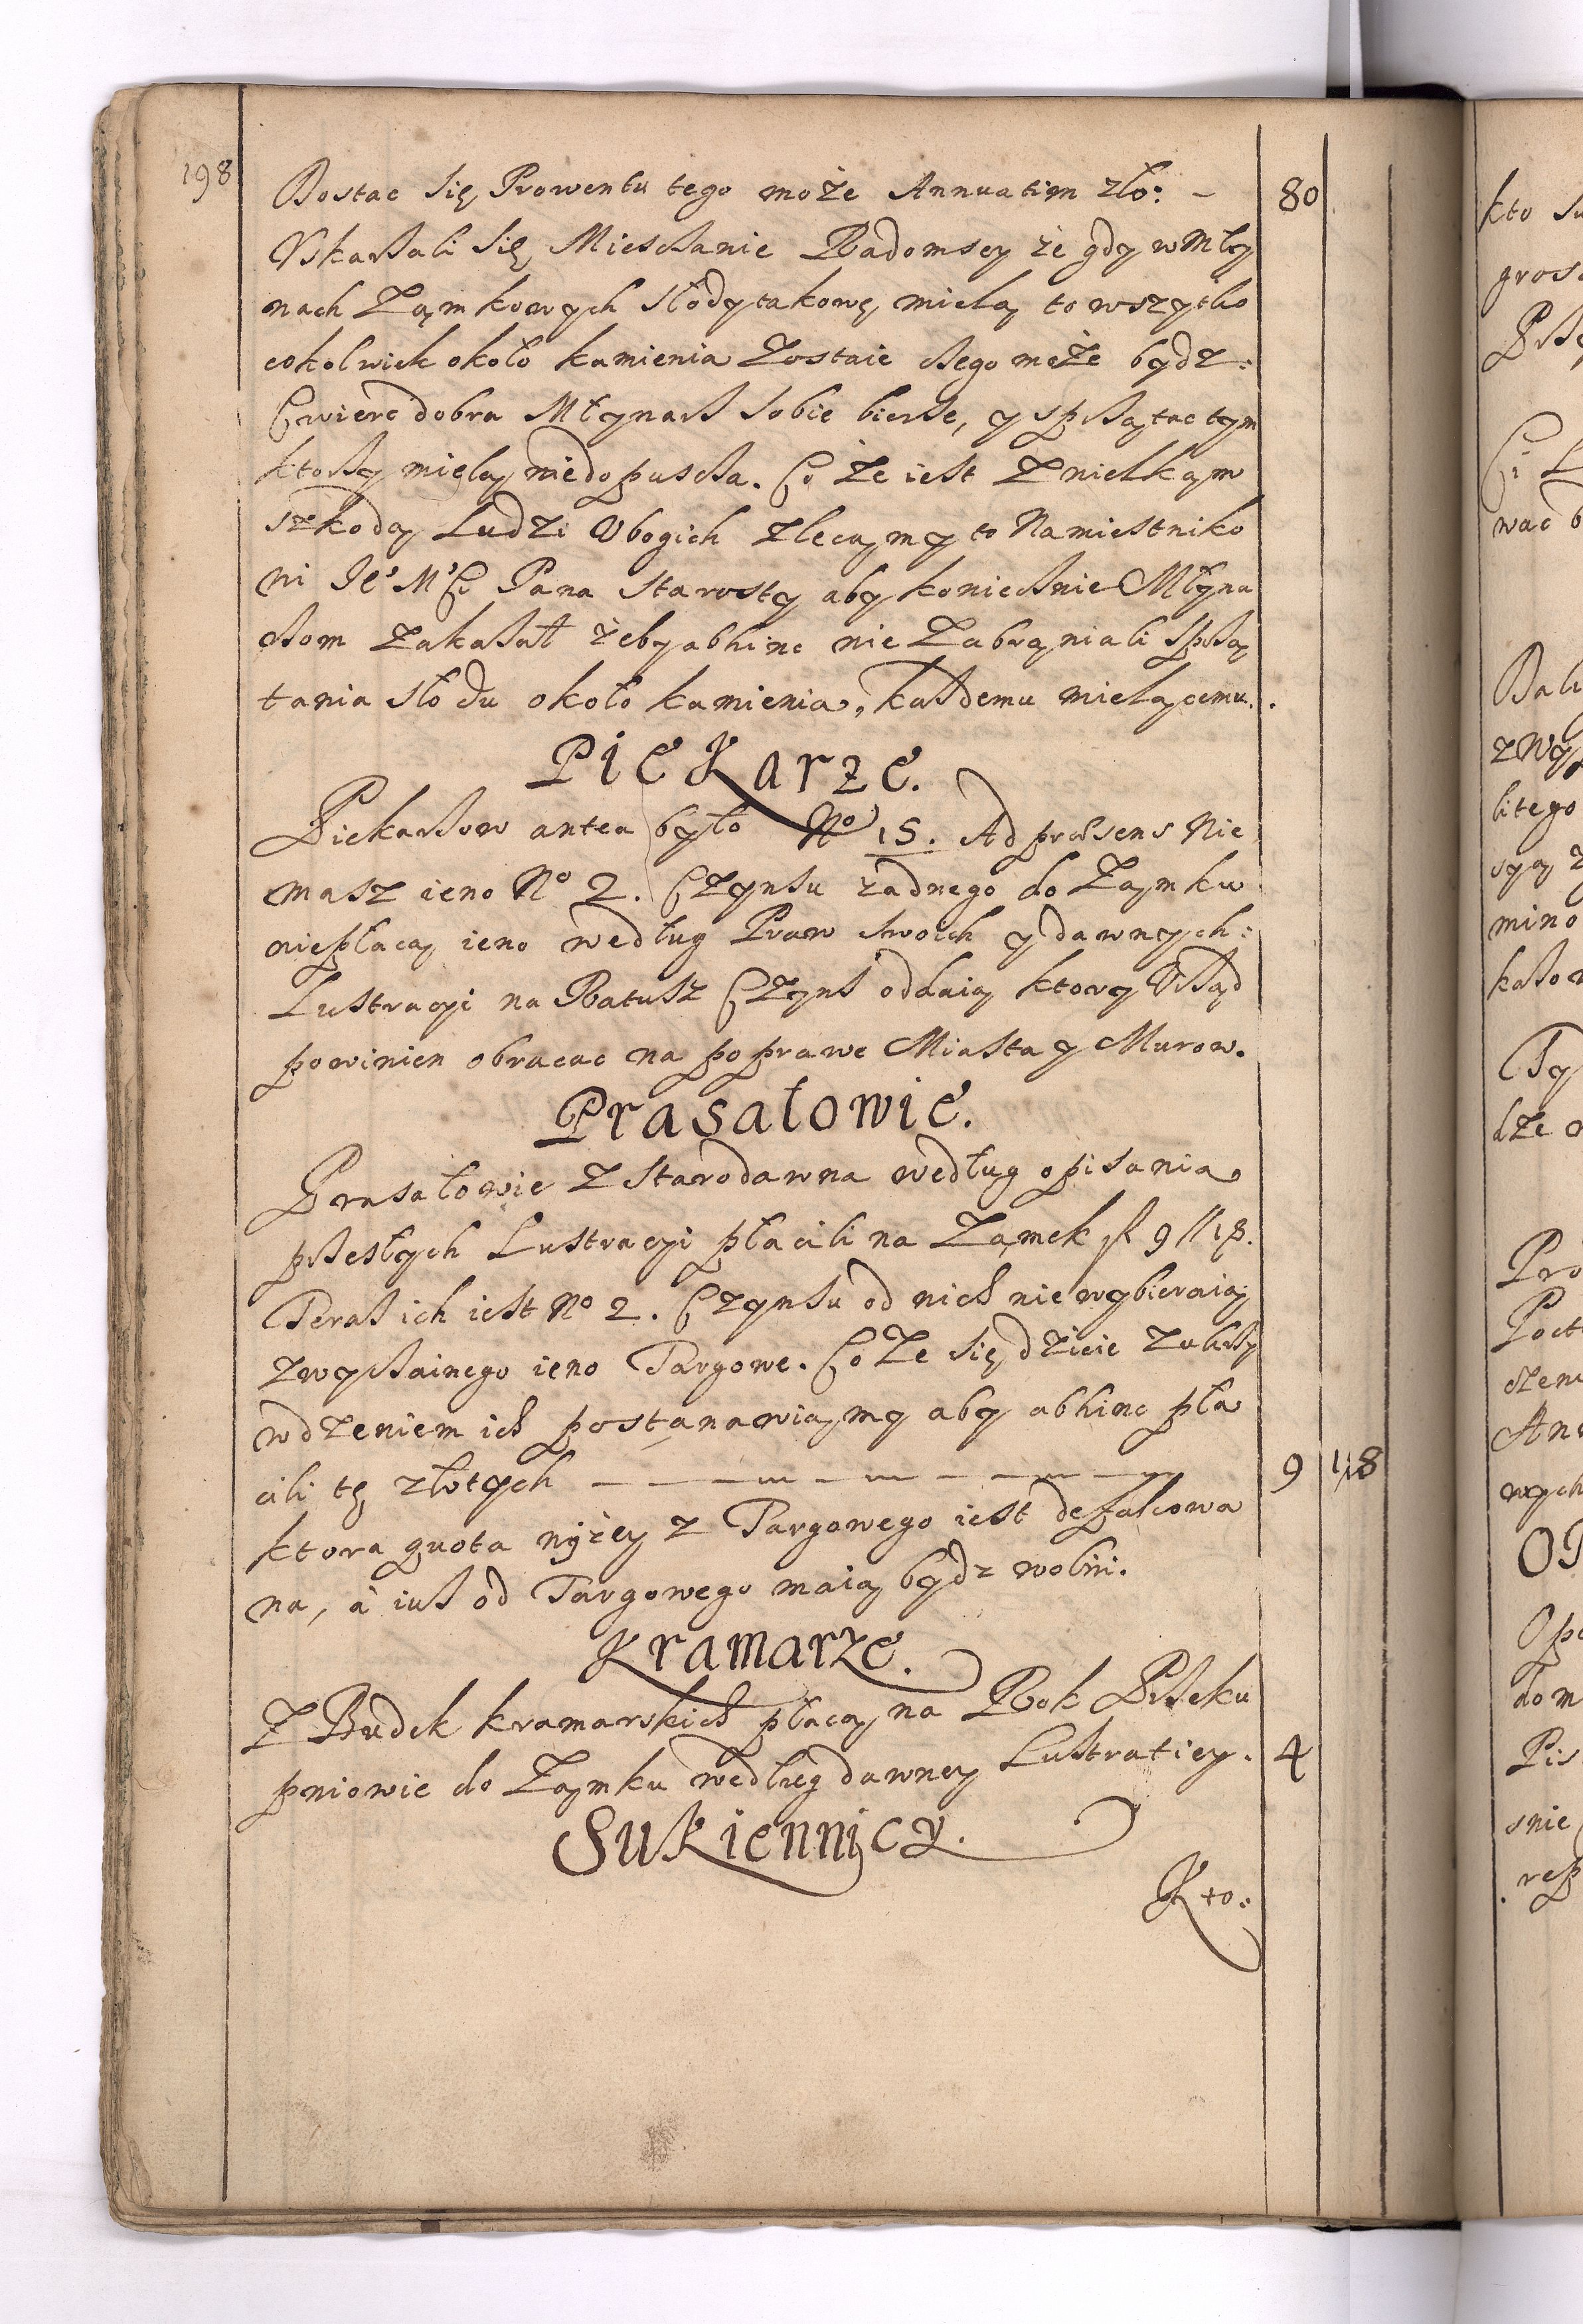 198
Dostac się Prowentu tego może Annuatim zło: – 80
Uskarżali się Mieszczanie Radomscy że gdy w Mły
nach Zamkowych słody takowe mielą to wszytko
cokolwiek około kamienia zostaie czego może bydz:
Cwierc dobra Młynarz sobie bierze, y sprzątac tym
ktorzy mielą niedopuszcza. Co że iest z wielką
szkodą Ludzi Ubogich zlecamy to Namiestniko
wi Je° M°C Pana Starosty aby koniecznie Młyna
rzom zakazał żeby abhinc nie zabraniali sprzą
tania słodu około kamienia, każdemu mielącemu.
Piekarze.
Piekarzow antea było No 15. Ad præsens Nie
masz ieno No 2. Czynszu żadnego do Zamku
niepłacą ieno według Praw swoich y dawnych:
Lustracyi na Ratusz Czynsz oddaią ktory Urząd
powinien obracac na poprawe Miasta y Murow.
Prasałowie.
Prasałowie z starodawna według opisania
przeszłych Lustracyi płacili na Zamek fl 9 // 18.
Teraz ich iest No 2. Czynszu od nich nie wybieraią
zwyczainego ieno Targowe. Co że się dzieie z ukrzy
wdzeniem ich postanawiamy aby abhinc pła
cili tę złotych — — — — — — 9 18
ktora quota niżey z Targowego iest defalcowa
na, à iuż od Targowego maią bydz wolni.
Kramarze.
Z Budek kramarskich płacą na Rok Przeku
pniowie do Zamku według dawney Lustratiey. 4
Sukiennicy.
Kto: